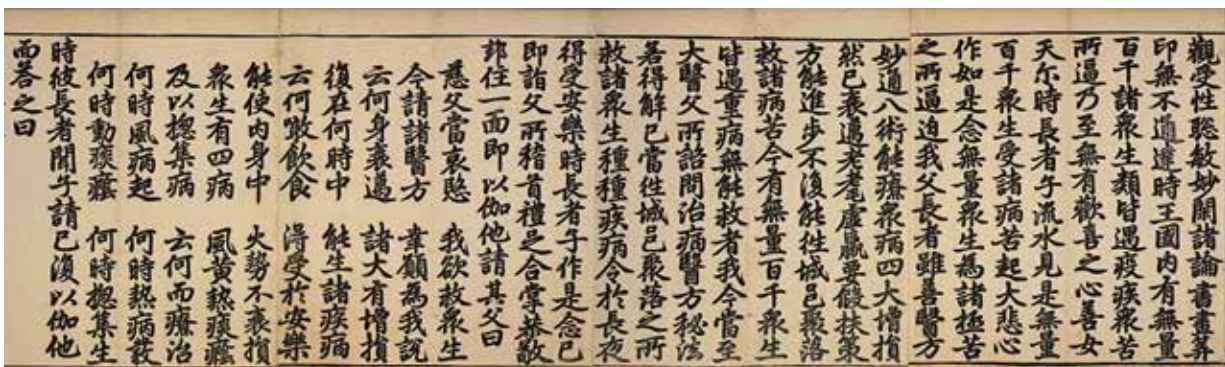 觀受性聦敏妙閑諸論書畫筭
印無不通達時王國內有無量
百千諸衆生類皆遇疫疾衆苦
所逼乃至無有歡喜之心善女
天尓時長者子流水見是無量
百千衆生受諸病苦起大悲心
作如是念無量衆生為諸極苦
之所逼迫我父長者雖善醫方
妙通八術能療衆病四大增損
然已衰邁老耄虛羸要假扶策
方能進步不復能徃城邑聚落
救諸病苦今有無量百千衆生
皆遇重病無能救者我今當至
大醫父所諮問治病醫方秘法
若得解已當徃城邑聚落之所
救諸衆生種種疾病令於長夜
得受安樂時長者子作是念已
即詣父所稽首禮足合掌恭敬
却住一面即以伽他請其父曰
慈父當哀愍 我欲救衆生
今請諸醫方 幸願為我說
云何身衰邁 諸大有增損
復在何時中 能生諸疾病
云何噉飲食 得受於安樂
能使內身中 火勢不衰損
衆生有四病 風黃熱痰癊
及以揔集病 云何而療治
何時風病起 何時熱病發
何時動痰癊 何時揔集生
時彼長者聞子請已復以伽他
而答之曰